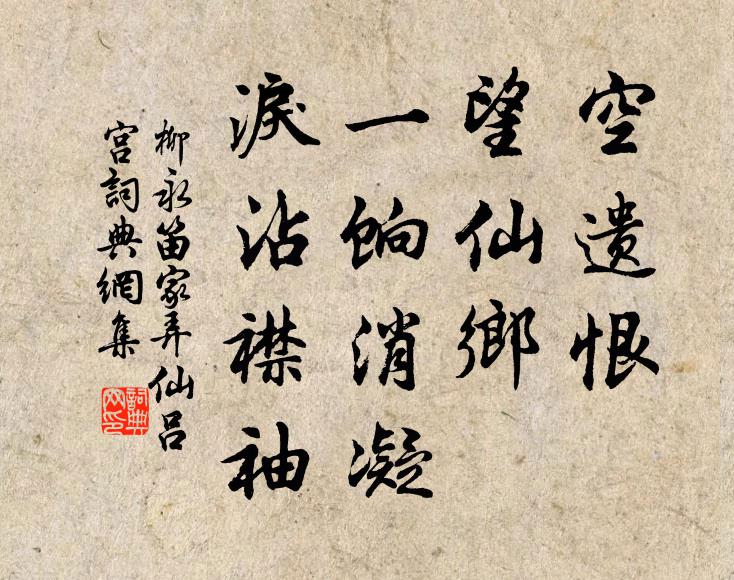 空遗恨
望仙鄉
一餉消凝
淚沾襟袖
柳永笛家弄仙呂
宮詞典網集
詞典網印